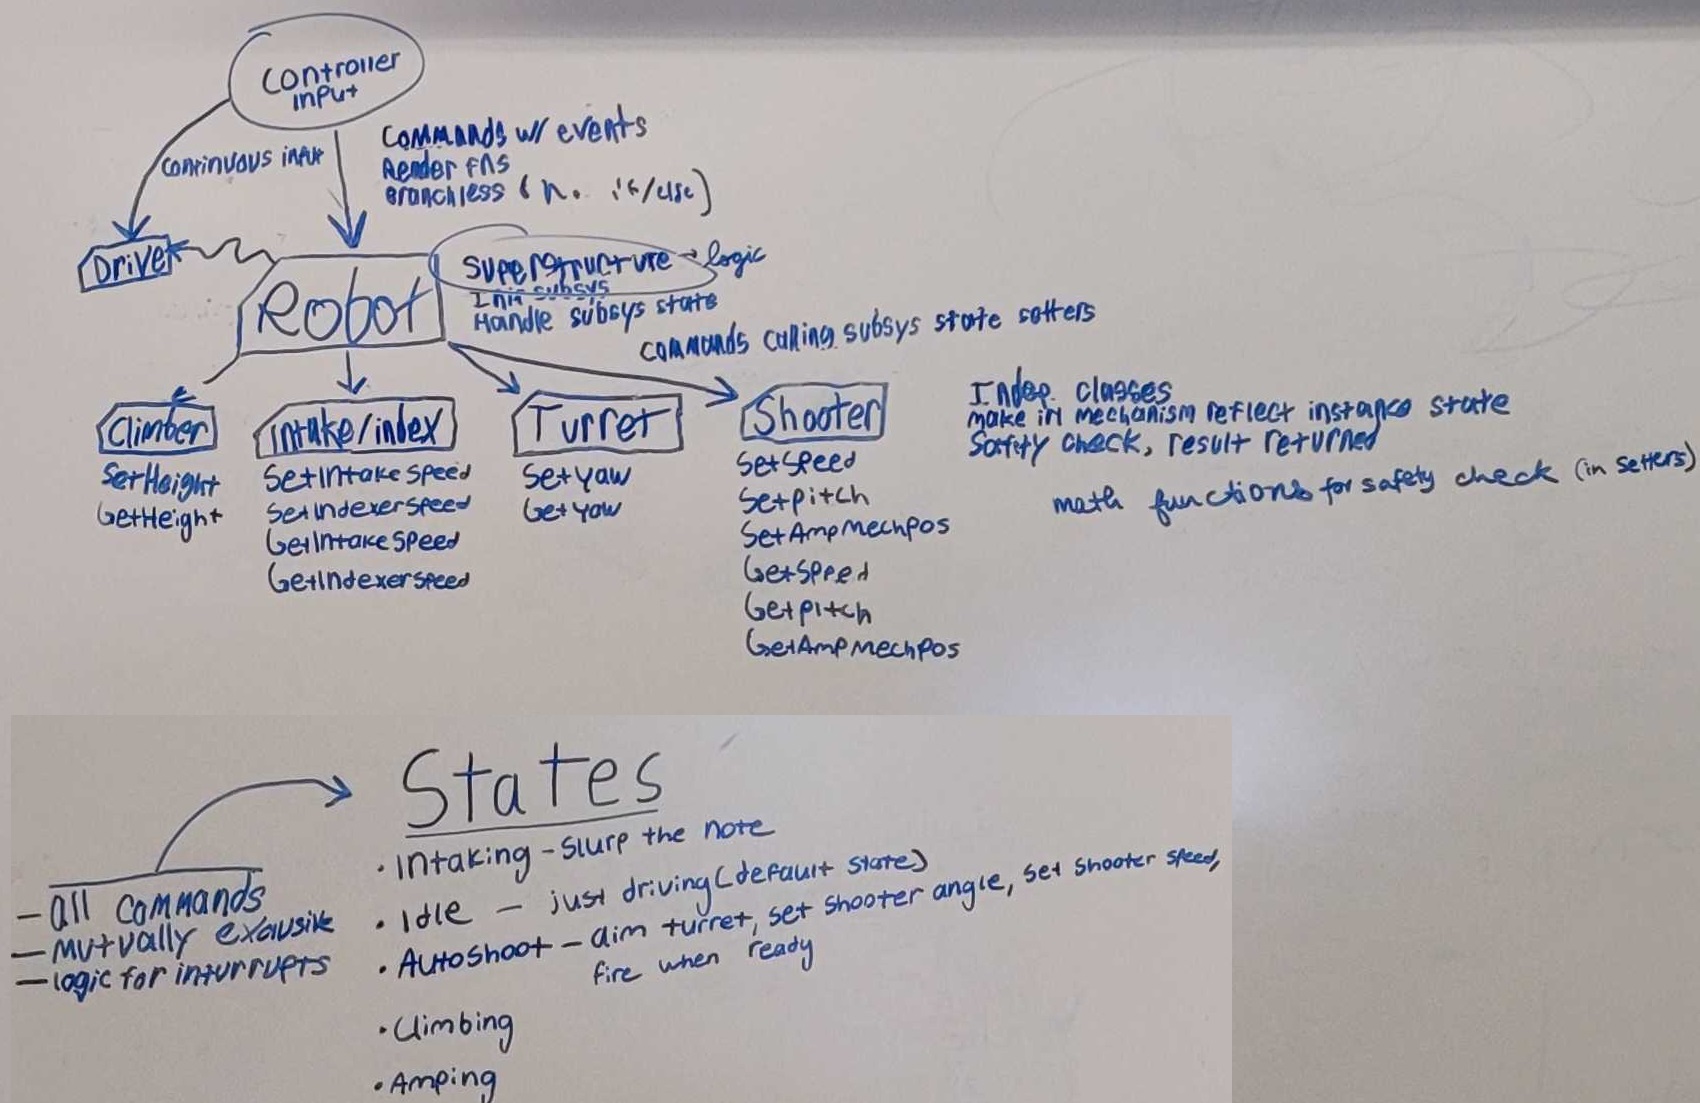 Controller
input
continuous input
Commands w/ events
Render fns
Branchless (no if/else)
Drive
Robot
Superstructure → logic
Init subsys
Handle subsys state
commands calling subsys state setters
Climber
SetHeight
GetHeight
intake/index
SetIntakeSpeed
SetIndexerSpeed
GetIntakeSpeed
GetIndexerSpeed
Turret
Setyaw
Getyaw
Shooter
SetSpeed
Setpitch
SetAmpMechPos
GetSpeed
Getpitch
GetAmpMechPos
Indep. classes
make irl mechanism reflect instance state
Safety check, result returned
math functions for safety check (in setters)
States
• Intaking - slurp the note
• Idle - just driving (default state)
• Autoshoot - aim turret, set shooter angle, set shooter speed,
fire when ready
• Climbing
• Amping
- all commands
- mutually exlusive
- logic for inturrupts